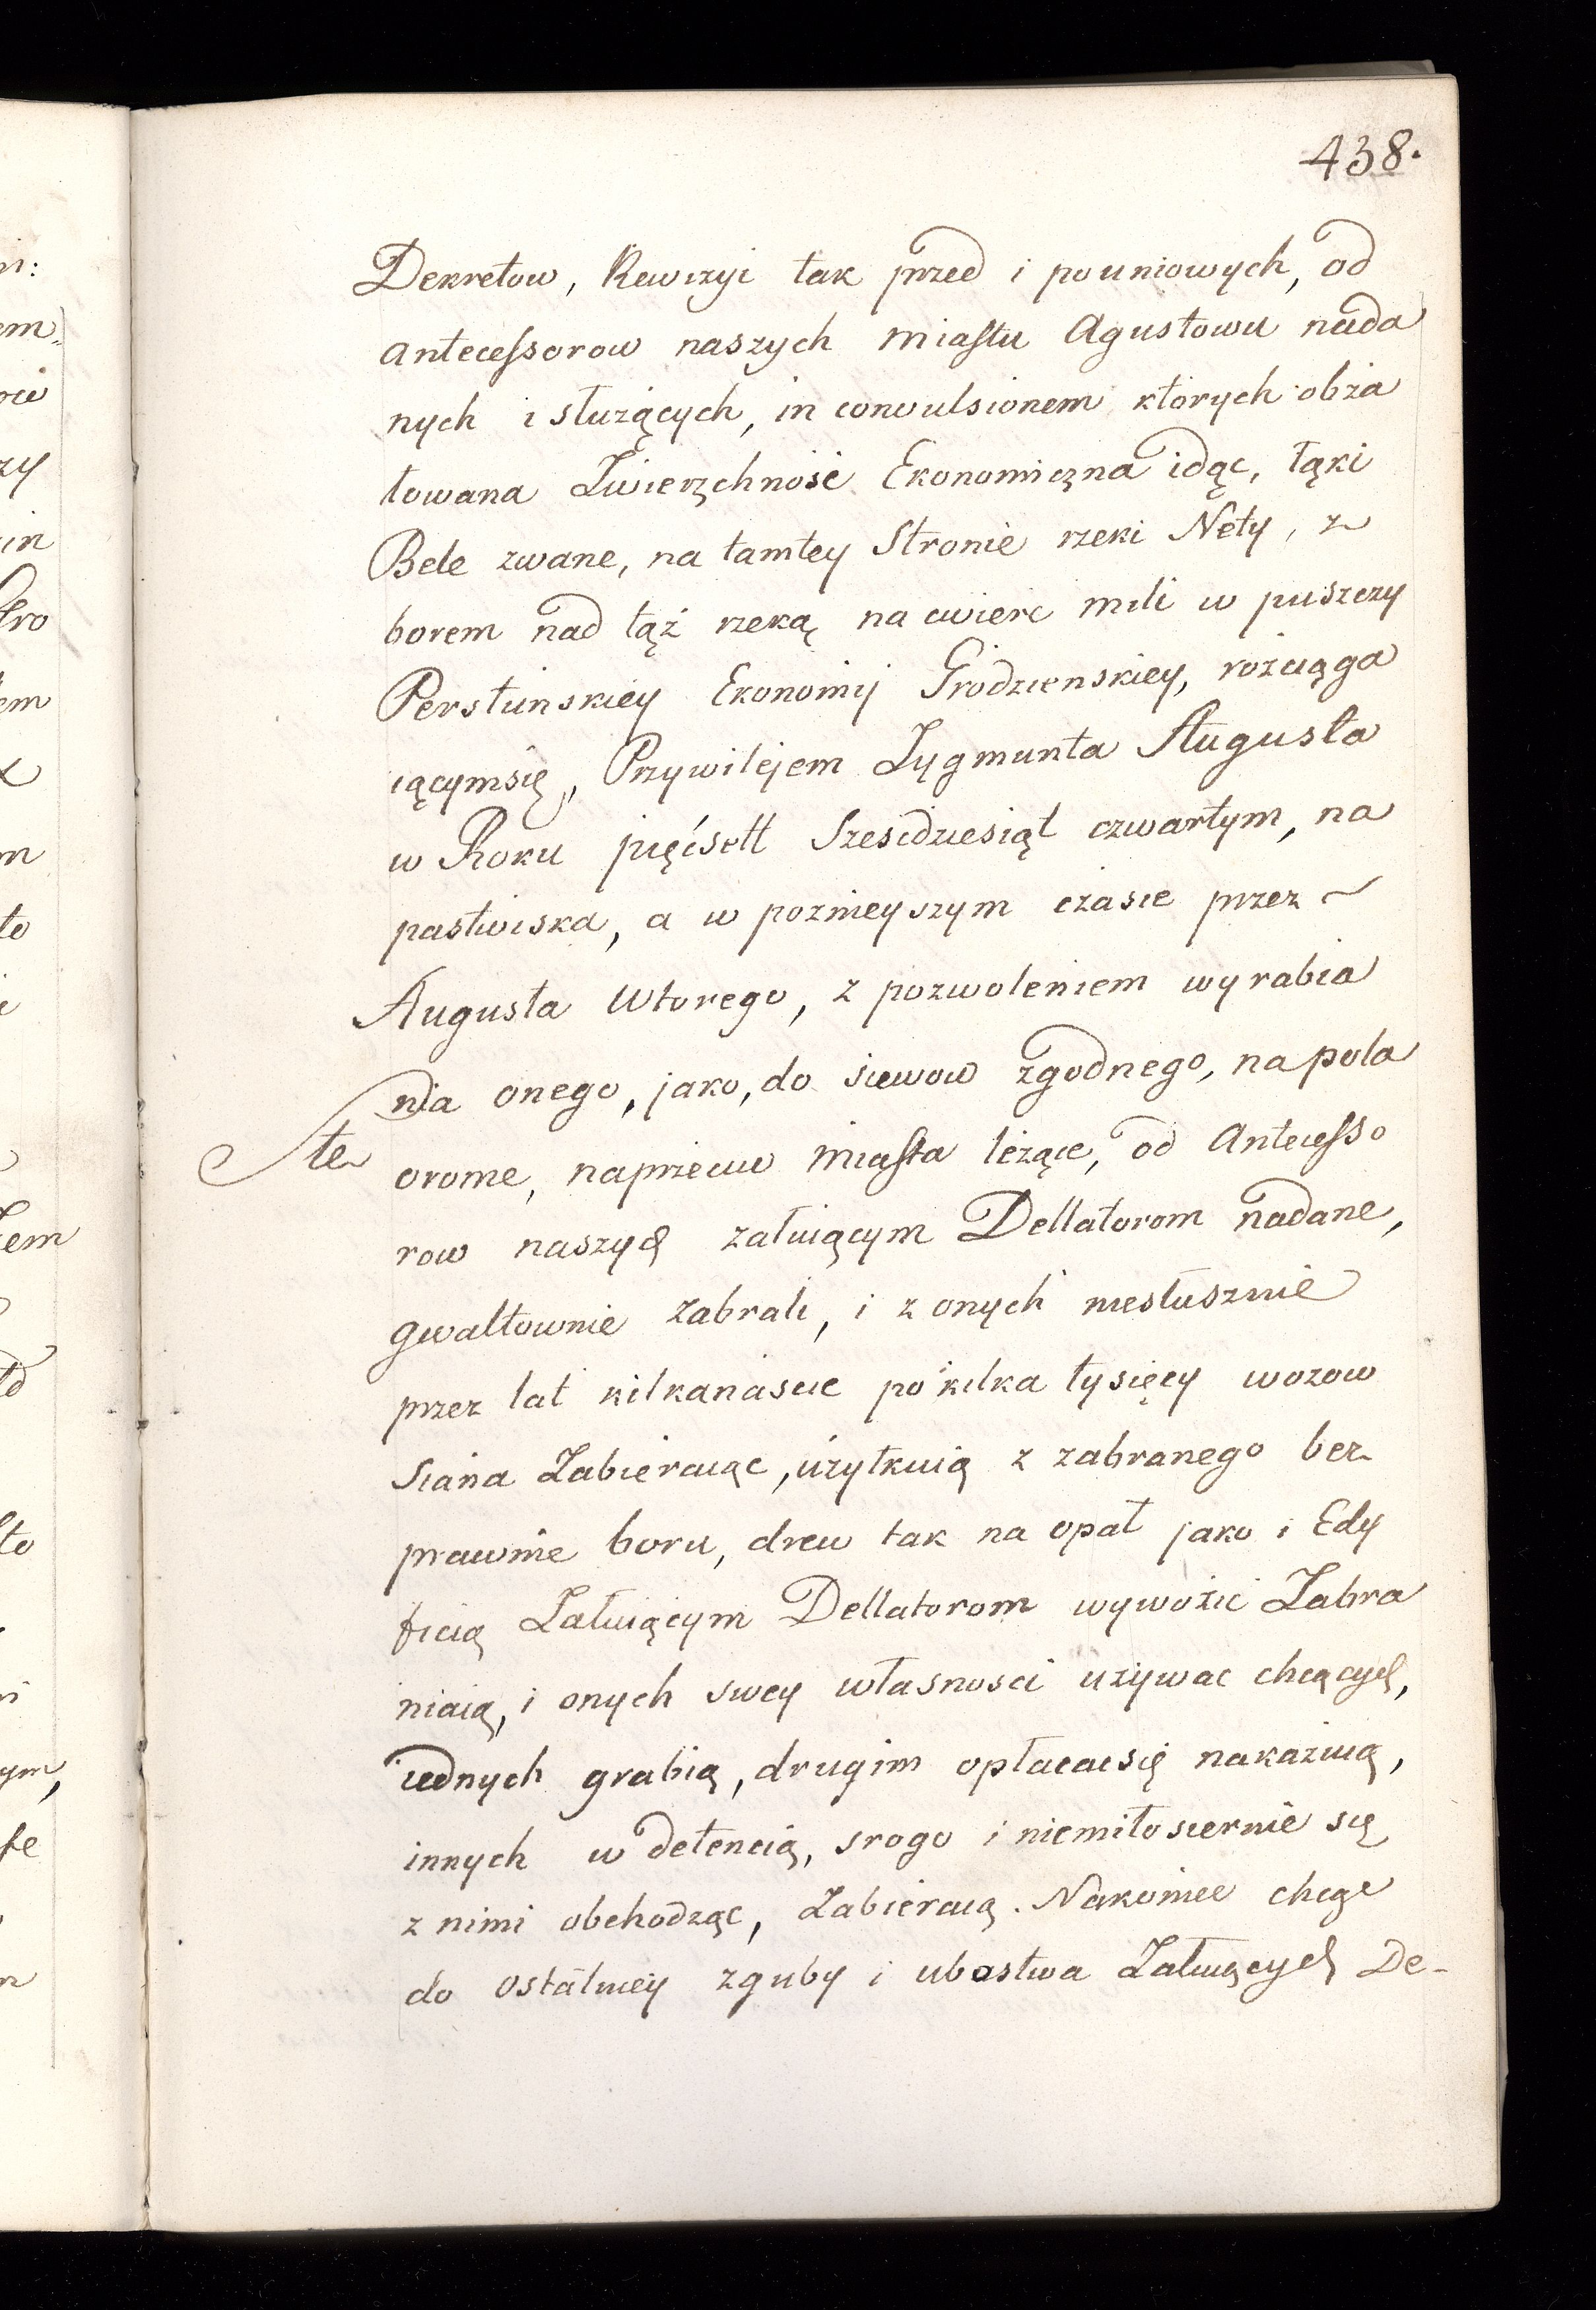 438.
Dekretow, Rewizyi tak przed i pouniowych, od
Antecessorow naszych Miastu Agustowu nada
nych i słuzących, in convulsionem ktorych obża
towana Zwierzchność Ekonomiczna idąc, łąki
Bele zwane, na tamtey Stronie rzeki Nety, z
borem nad tąż rzeką na cwierc mili w puszczy
Perstunskiey Ekonomij Grodzienskiey, rozciąga
iącymsię, Przywilejem Zygmunta Augusta
w Roku pięćsett Szescdziesiąt czwartym, na
pastwiska, a w pozniejszym czasie przez
Augusta Wtorego, z pozwoleniem wyrabia
nia onego, jako, do siewow zgodnego, na pola
te
orome, naprzeciw Miasta leżące, od Antecesso
row naszych załuiącym Dellatorom nadane,
gwałtownie zabrali, i z onych niesłusznie
przez lat kilkanascie po kilka tysięcy wozow
Siana Zabieraiąc, użytkuią z zabranego bez
prawnie boru, drew tak na opał jako i Edy
ficią Załuiącym Dellatorom wywozić Zabra
niaią, i onych swey własnosci uzywac chcących,
iednych grabią, drugim opłacacsię nakazuią,
innych w detencią, srogo i niemiłosiernie się
z nimi obchodząc, Zabieraią. Nakoniec chcąc
do ostatniey zguby i ubostwa Załuiących De-